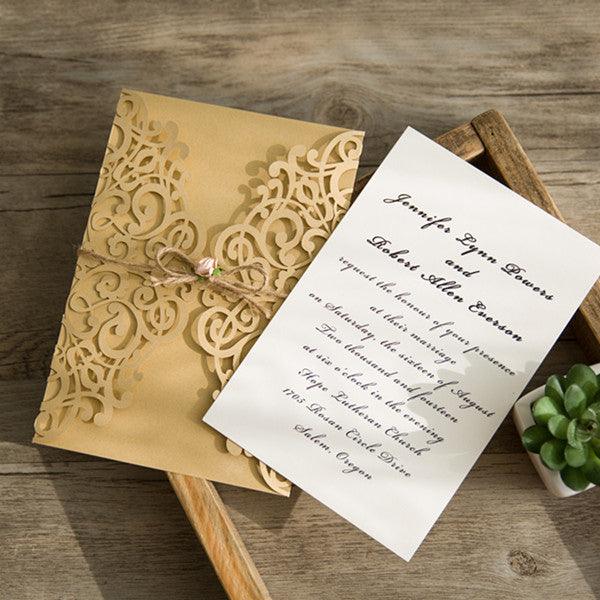 Jennifer Lynn Powers
and
Robert Allen Everson
request the honour of your presence
at their marriage
on Saturday the sixteen of August
Two thousand and fourteen
at six o'clock in the evening
Hope Lutheran Church
1705 Rosan Circle Drive
Salem, Oregon